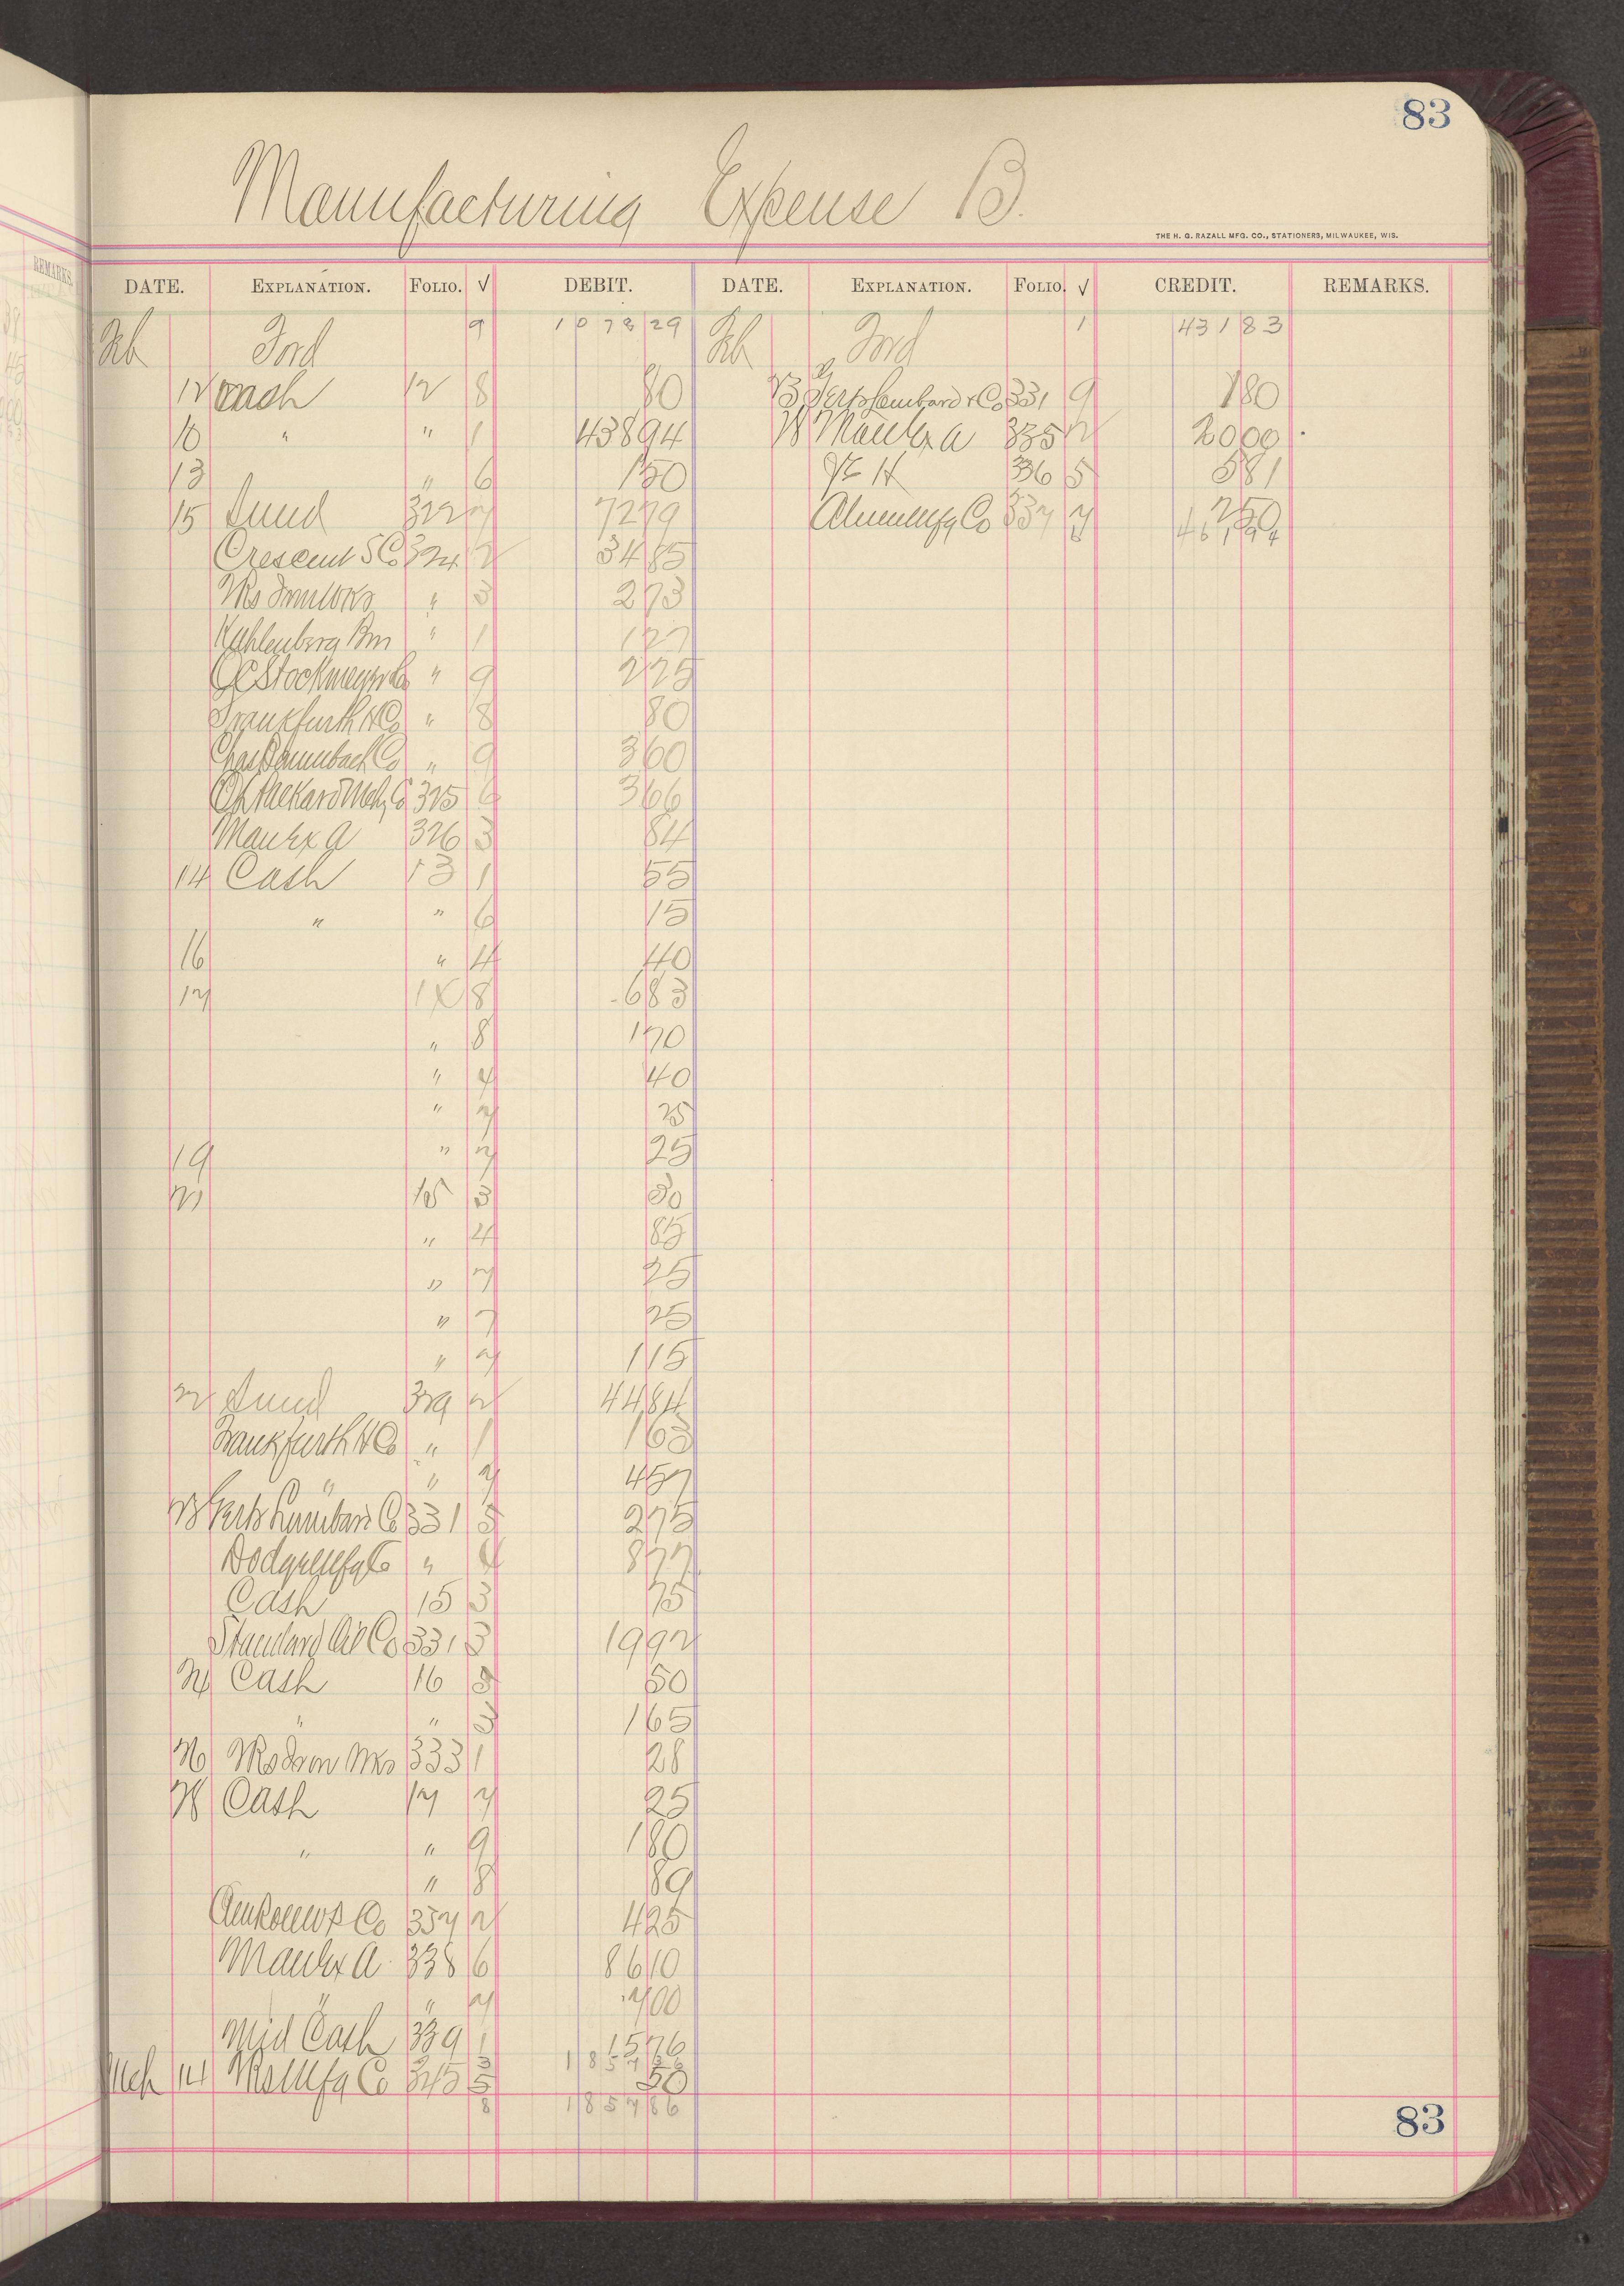 83
Manufacturing Expense B.
THE H. G. RAZALL MFG. CO., STATIONERS, MILWAUKEE, WIS.
REMARKS.
DATE. EXPLANATION. FOLIO. √ DEBIT. DATE. EXPLANATION. FOLIO. √ CREDIT. REMARKS.
Feb Ford 9 1078 29 Feb Ford 1 431 83
12 Cash 12 8 80 23 Gerts Lumbard & Co 331 9 1 80
10 " " 1 438 94 28 Man Ex A 335 2 20 00
13 " 6 1 50 336 5 5 81
15 Sund 322 7 72 79 Mfg Co 337 7 2 50
6 461 94
Crescent S Co 324 2 34 85
" 3 2 73
Kuhlenberg Bm " 1 1 27
Stockmeyer Co " 9 2 25
Frankfurth H Co " 8 80
Chas Co " 9 3 60
Packard Mch Co 325 6 3 66
Man Ex A 326 3 84
14 Cash 13 1 55
" " 6 15
16 " 4 40
17 8 6 83
" 8 1 70
" 4 40
" 7 25
19 " 7 25
21 15 3 30
" 4 85
" 7 25
" 7 25
" 7 1 15
22 Sund 329 2 44 84
Frankfurth H Co " 1 1 63
" " 7 4 57
23 Gerts Lumbard Co 331 5 2 75
Dodge Mfg Co " 4 8 77
Cash 15 3 75
Standard Oil Co 331 3 19 92
24 Cash 16 5 50
" " 3 1 65
26 Iron Wks 333 1 28
28 Cash 17 7 25
" " 9 1 80
" 8 89
Co 337 2 4 25
Man Ex A 338 6 86 10
" " 7 7 00
Mid Cash 339 1 15 76
3 1857 36
Mch 14 Mfg Co 345 5 50
8 1857 86
83